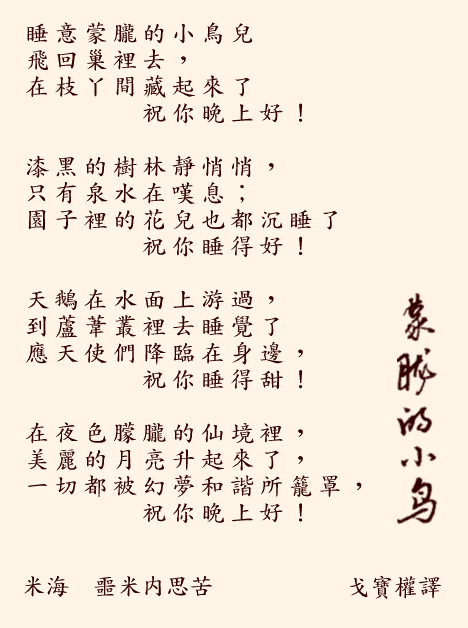 睡意蒙朧的小鳥兒
飛回巢裡去，
在枝丫間藏起來了
祝你晚上好！
漆黑的樹林靜悄悄，
只有泉水在嘆息；
園子裡的花兒也都沉睡了
祝你睡得好！
天鵝在水面上游過，
到蘆葦叢裡去睡覺了
應天使們降臨在身邊，
祝你睡得甜！
在夜色朦朧的仙境裡，
美麗的月亮升起來了，
一切都被幻夢和諧所籠罩，
祝你晚上好！
蒙朧的小鸟
米海　噩米内思苦
戈寶權譯